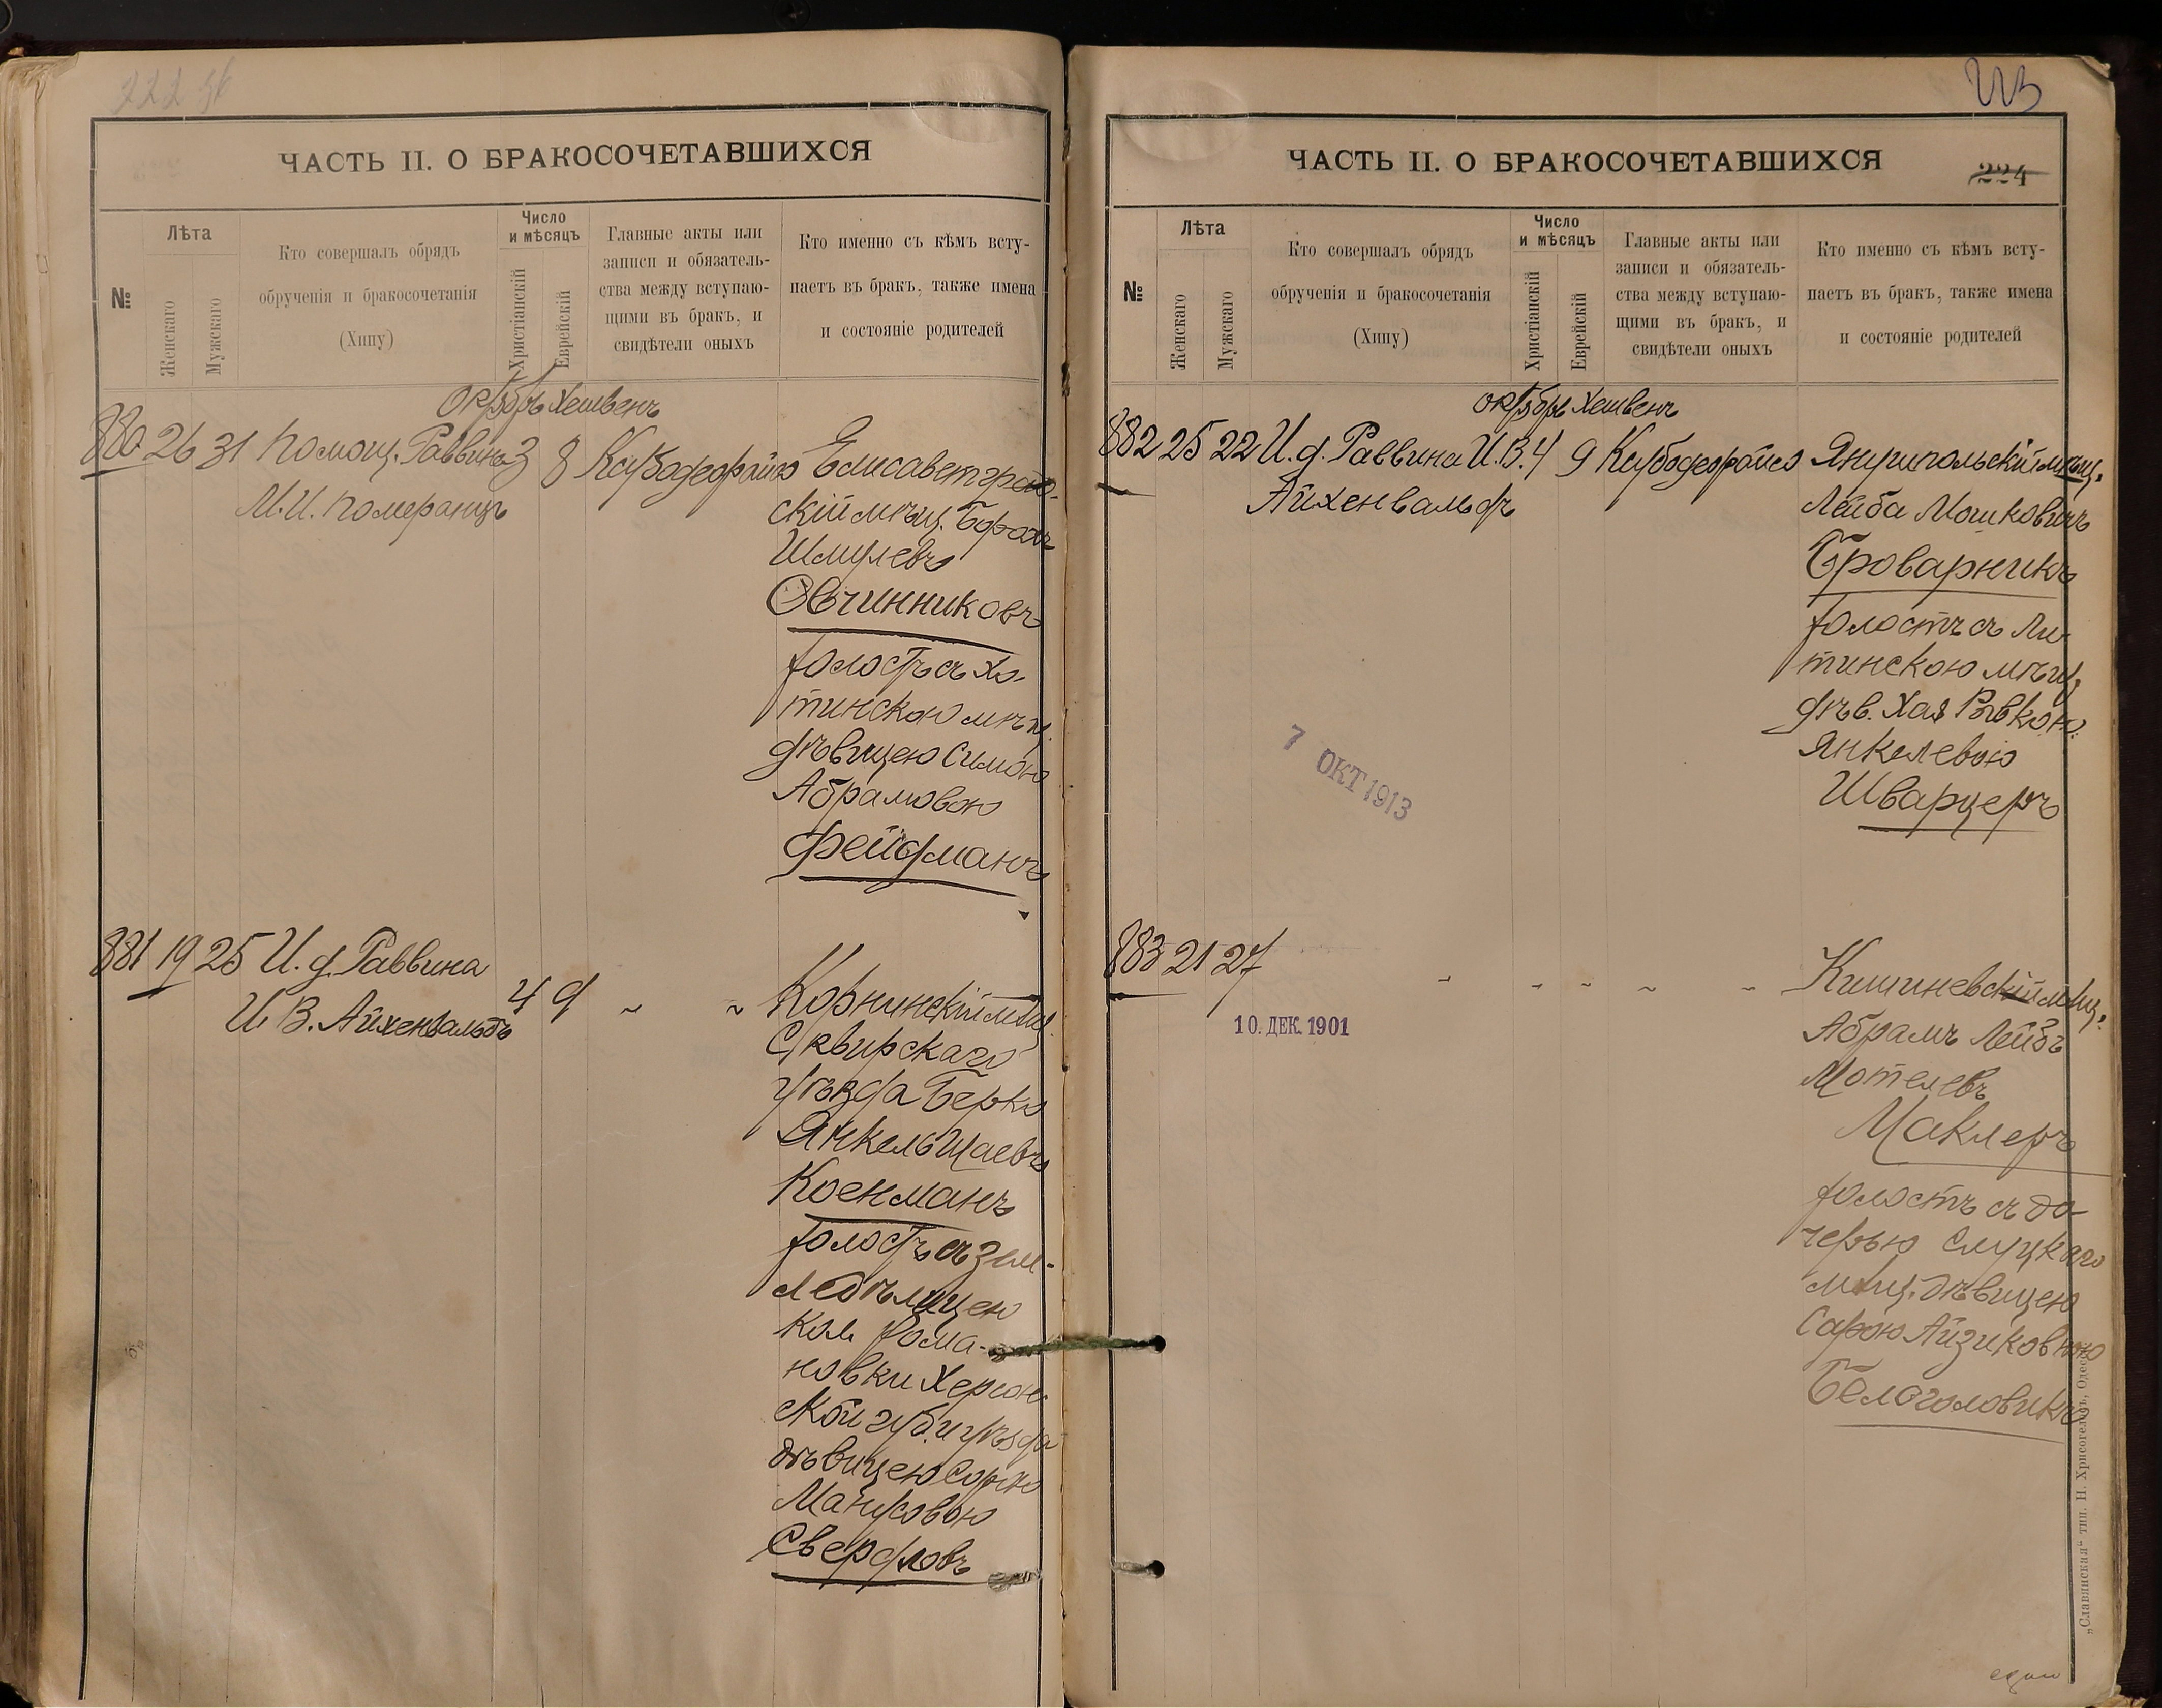 ЧАСТЬ II. О БРАКОСОЧЕТАВШИХСЯ
№
Лѣта
Женскаго
Мужскаго
Кто совершалъ обрядъ
обрученія и бракосочетанія
(Хипу)
Число
и мѣсяцъ
Христіанскій
Еврейскій
Главные акты или
записи и обязатель-
ства между вступаю-
щими въ бракъ, и
свидѣтели оныхъ
Кто именно съ кѣмъ всту-
паетъ въ бракъ, также имена
и состояніе родителей
Октябрь Хешвенъ
880 26 31 Помощ. Раввина 3 8
М. И. Померанцъ
Елисаветград-
скій мѣщ. Борохъ
Шмулевъ
Овчинниковъ
холостъ съ Хо-
тинскою мѣщ.
дѣвицею Симою
Абрамовою
Фейдманъ
881 19 25 И. д. Раввина
И. В. Айхенвальдъ 4 9 ~ ~
Корнинскій мѣщ.
Сквирскаго
уѣзда Берко
Янкель Шаевъ
Коенманъ
холостъ съ зем-
ледѣлицею
кол. Рома-
новки Херсон-
ской губ. и уѣзда
дѣвицею Сорою
Манусовою
Свердловъ
223
ЧАСТЬ II. О БРАКОСОЧЕТАВШИХСЯ
224
№
Лѣта
Женскаго
Мужскаго
Кто совершалъ обрядъ
обрученія и бракосочетанія
(Хипу)
Число
и мѣсяцъ
Христіанскій
Еврейскій
Главные акты или
записи и обязатель-
ства между вступаю-
щими въ бракъ, и
свидѣтели оныхъ
Кто именно съ кѣмъ всту-
паетъ въ бракъ, также имена
и состояніе родителей
октябрь Хешвенъ
882 25 22 И. д. Раввина И. В. 4 9
Айхенвальдъ
Янушпольскій мѣщ.
Лейба Мошковичъ
Броварникъ
холостъ съ Ли-
тинскою мѣщ.
дѣв. Хая Ривкою
Янкелевою
Шварцеръ
7 ОКТ 1913
883 21 27 ~ ~ ~ ~ ~
10. ДЕК. 1901
Кишиневскій мѣщ.
Абрамъ Лейбъ
Мотелевъ
Маклеръ
холостъ съ до-
черью Слуцкаго
мѣщ. дѣвицею
Сарою Айзиковною
Белоголовикъ
„Славянская“ тип. Н. Хрисогелосъ, Одесса